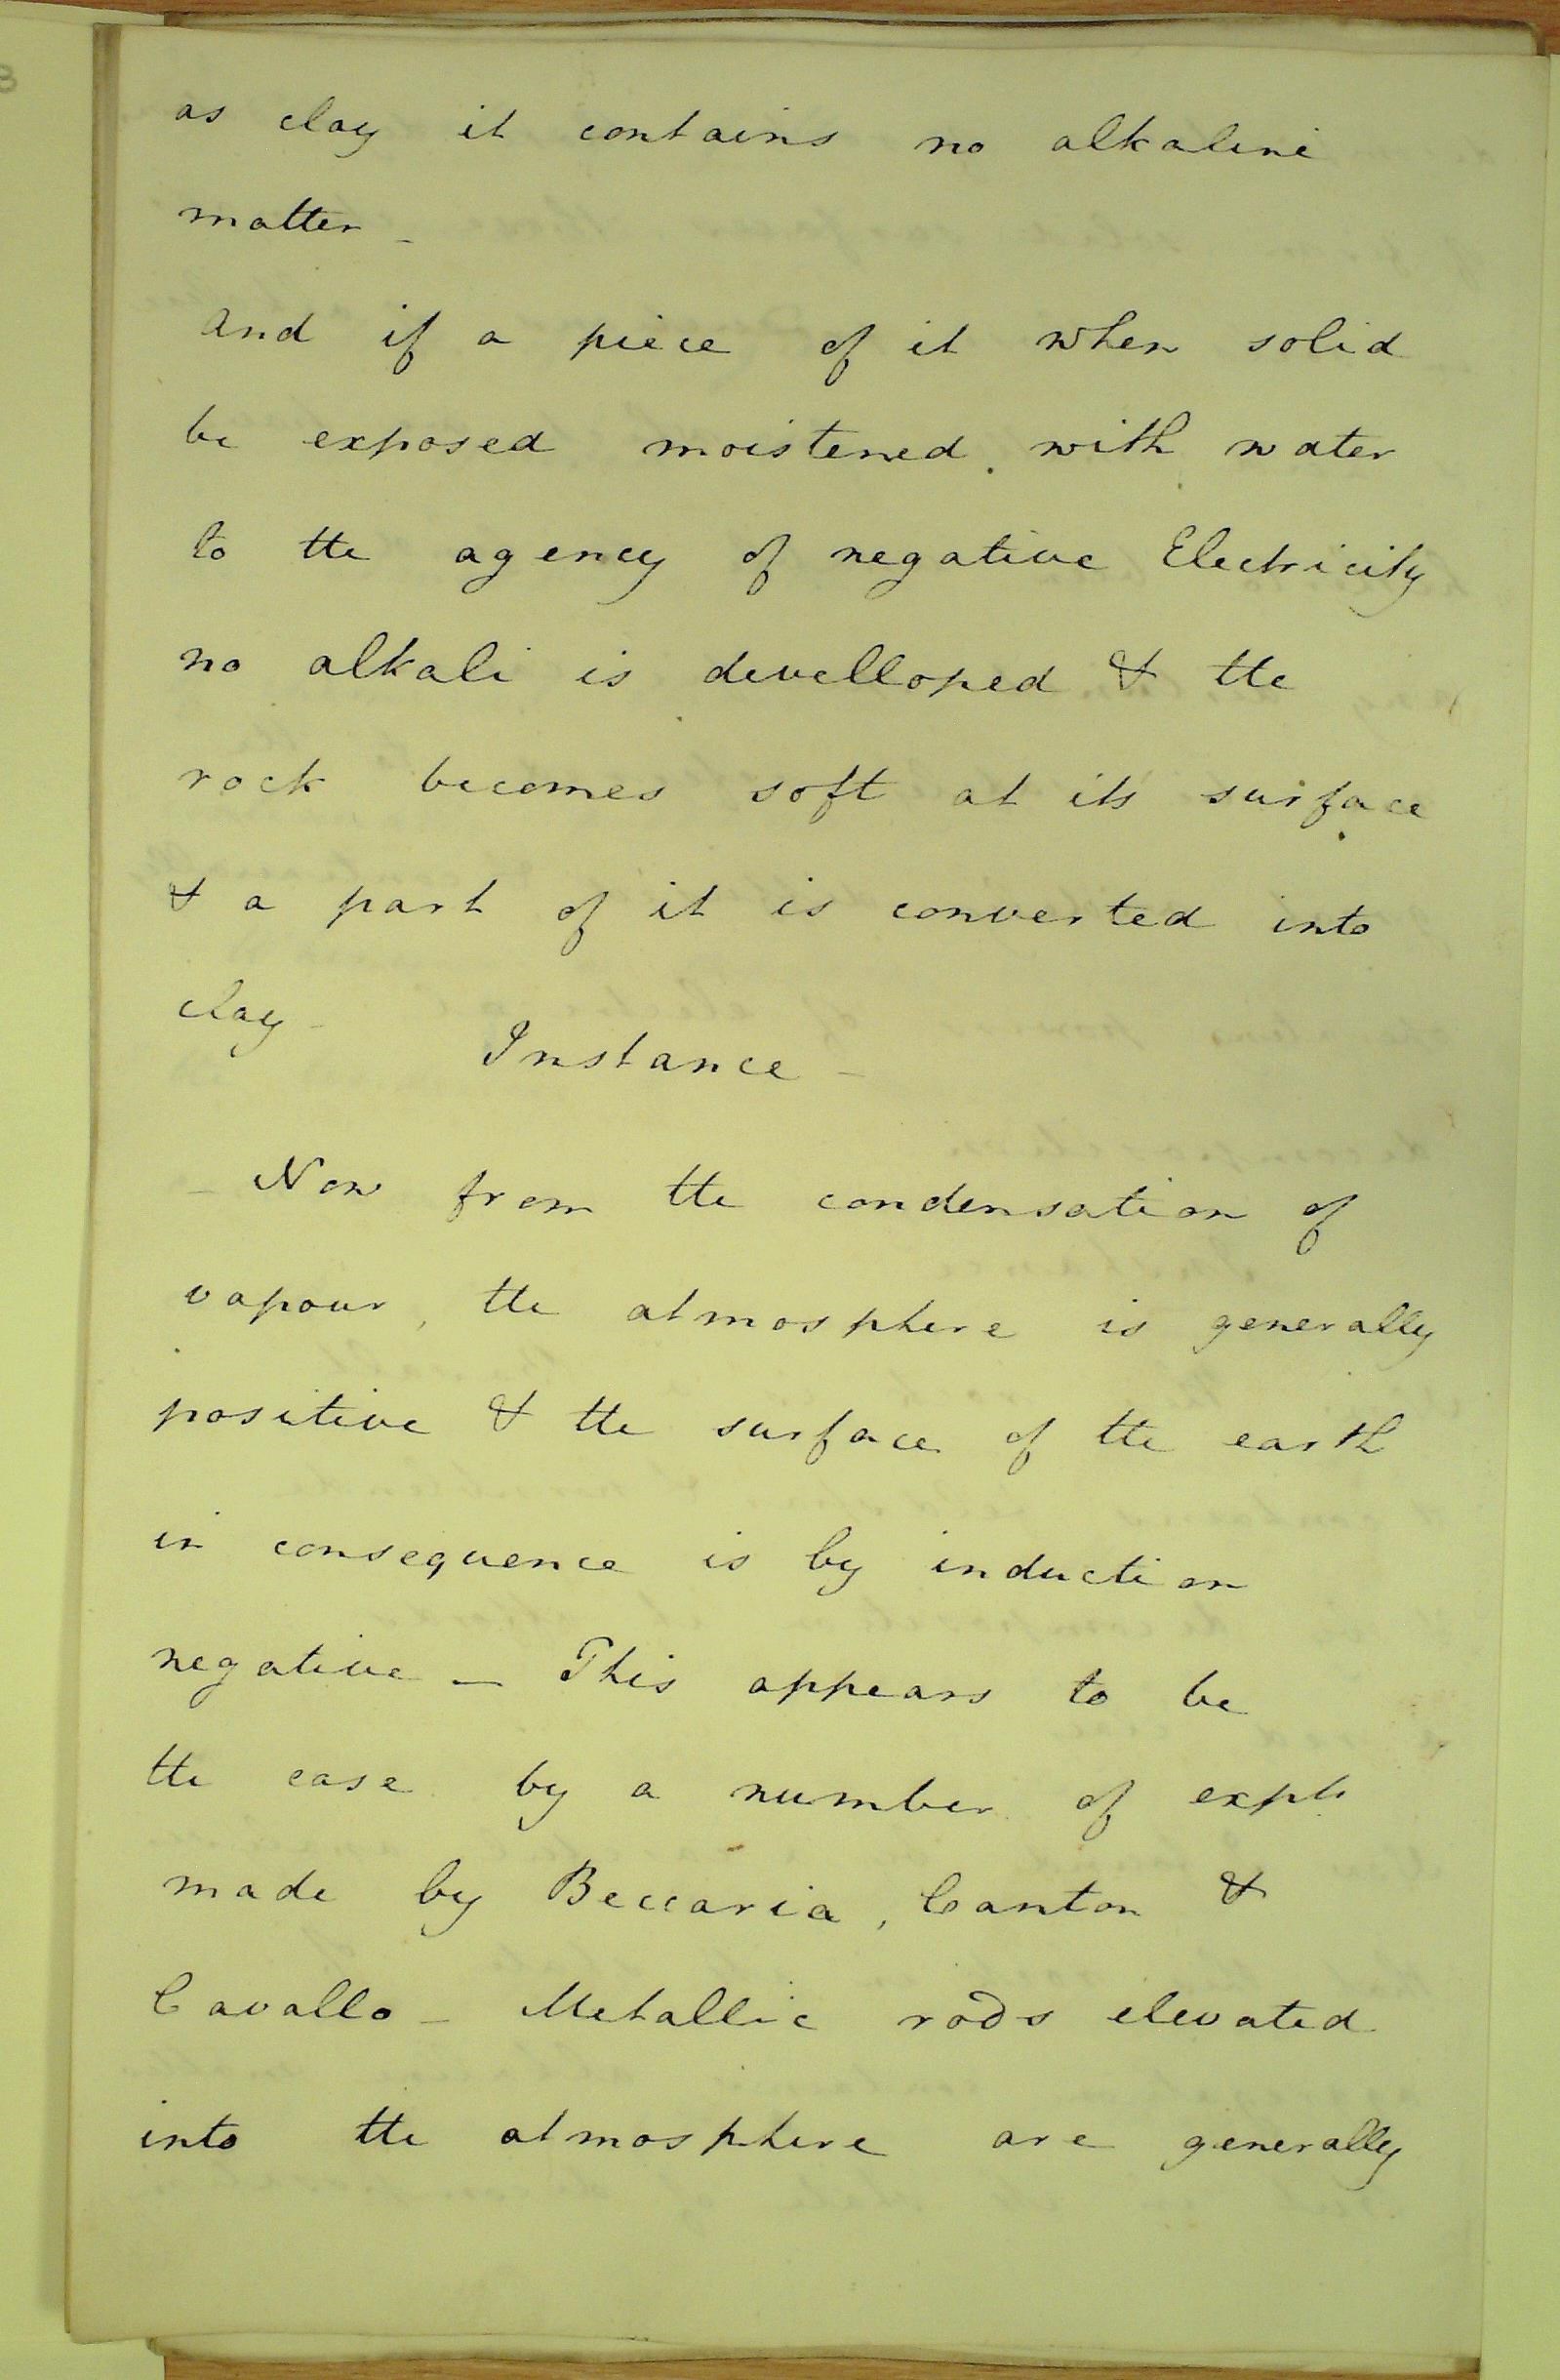 as clay it contains no alkaline
matter _
And if a piece of it when solid
be exposed moistened with water
to the agency of negative Electricity
no alkali is develloped & the
rock becomes soft at its surface
& a part of it is converted into
clay _
Instance _
_ Now from the condensation of
vapour, the atmosphere is generally
positive & the surface of the earth
in consequence is by induction
negative _ This appears to be
the case by a number of expts
made by Beccaria, Canton &
Cavallo _ Metallic rods elevated
into the atmosphere are generally